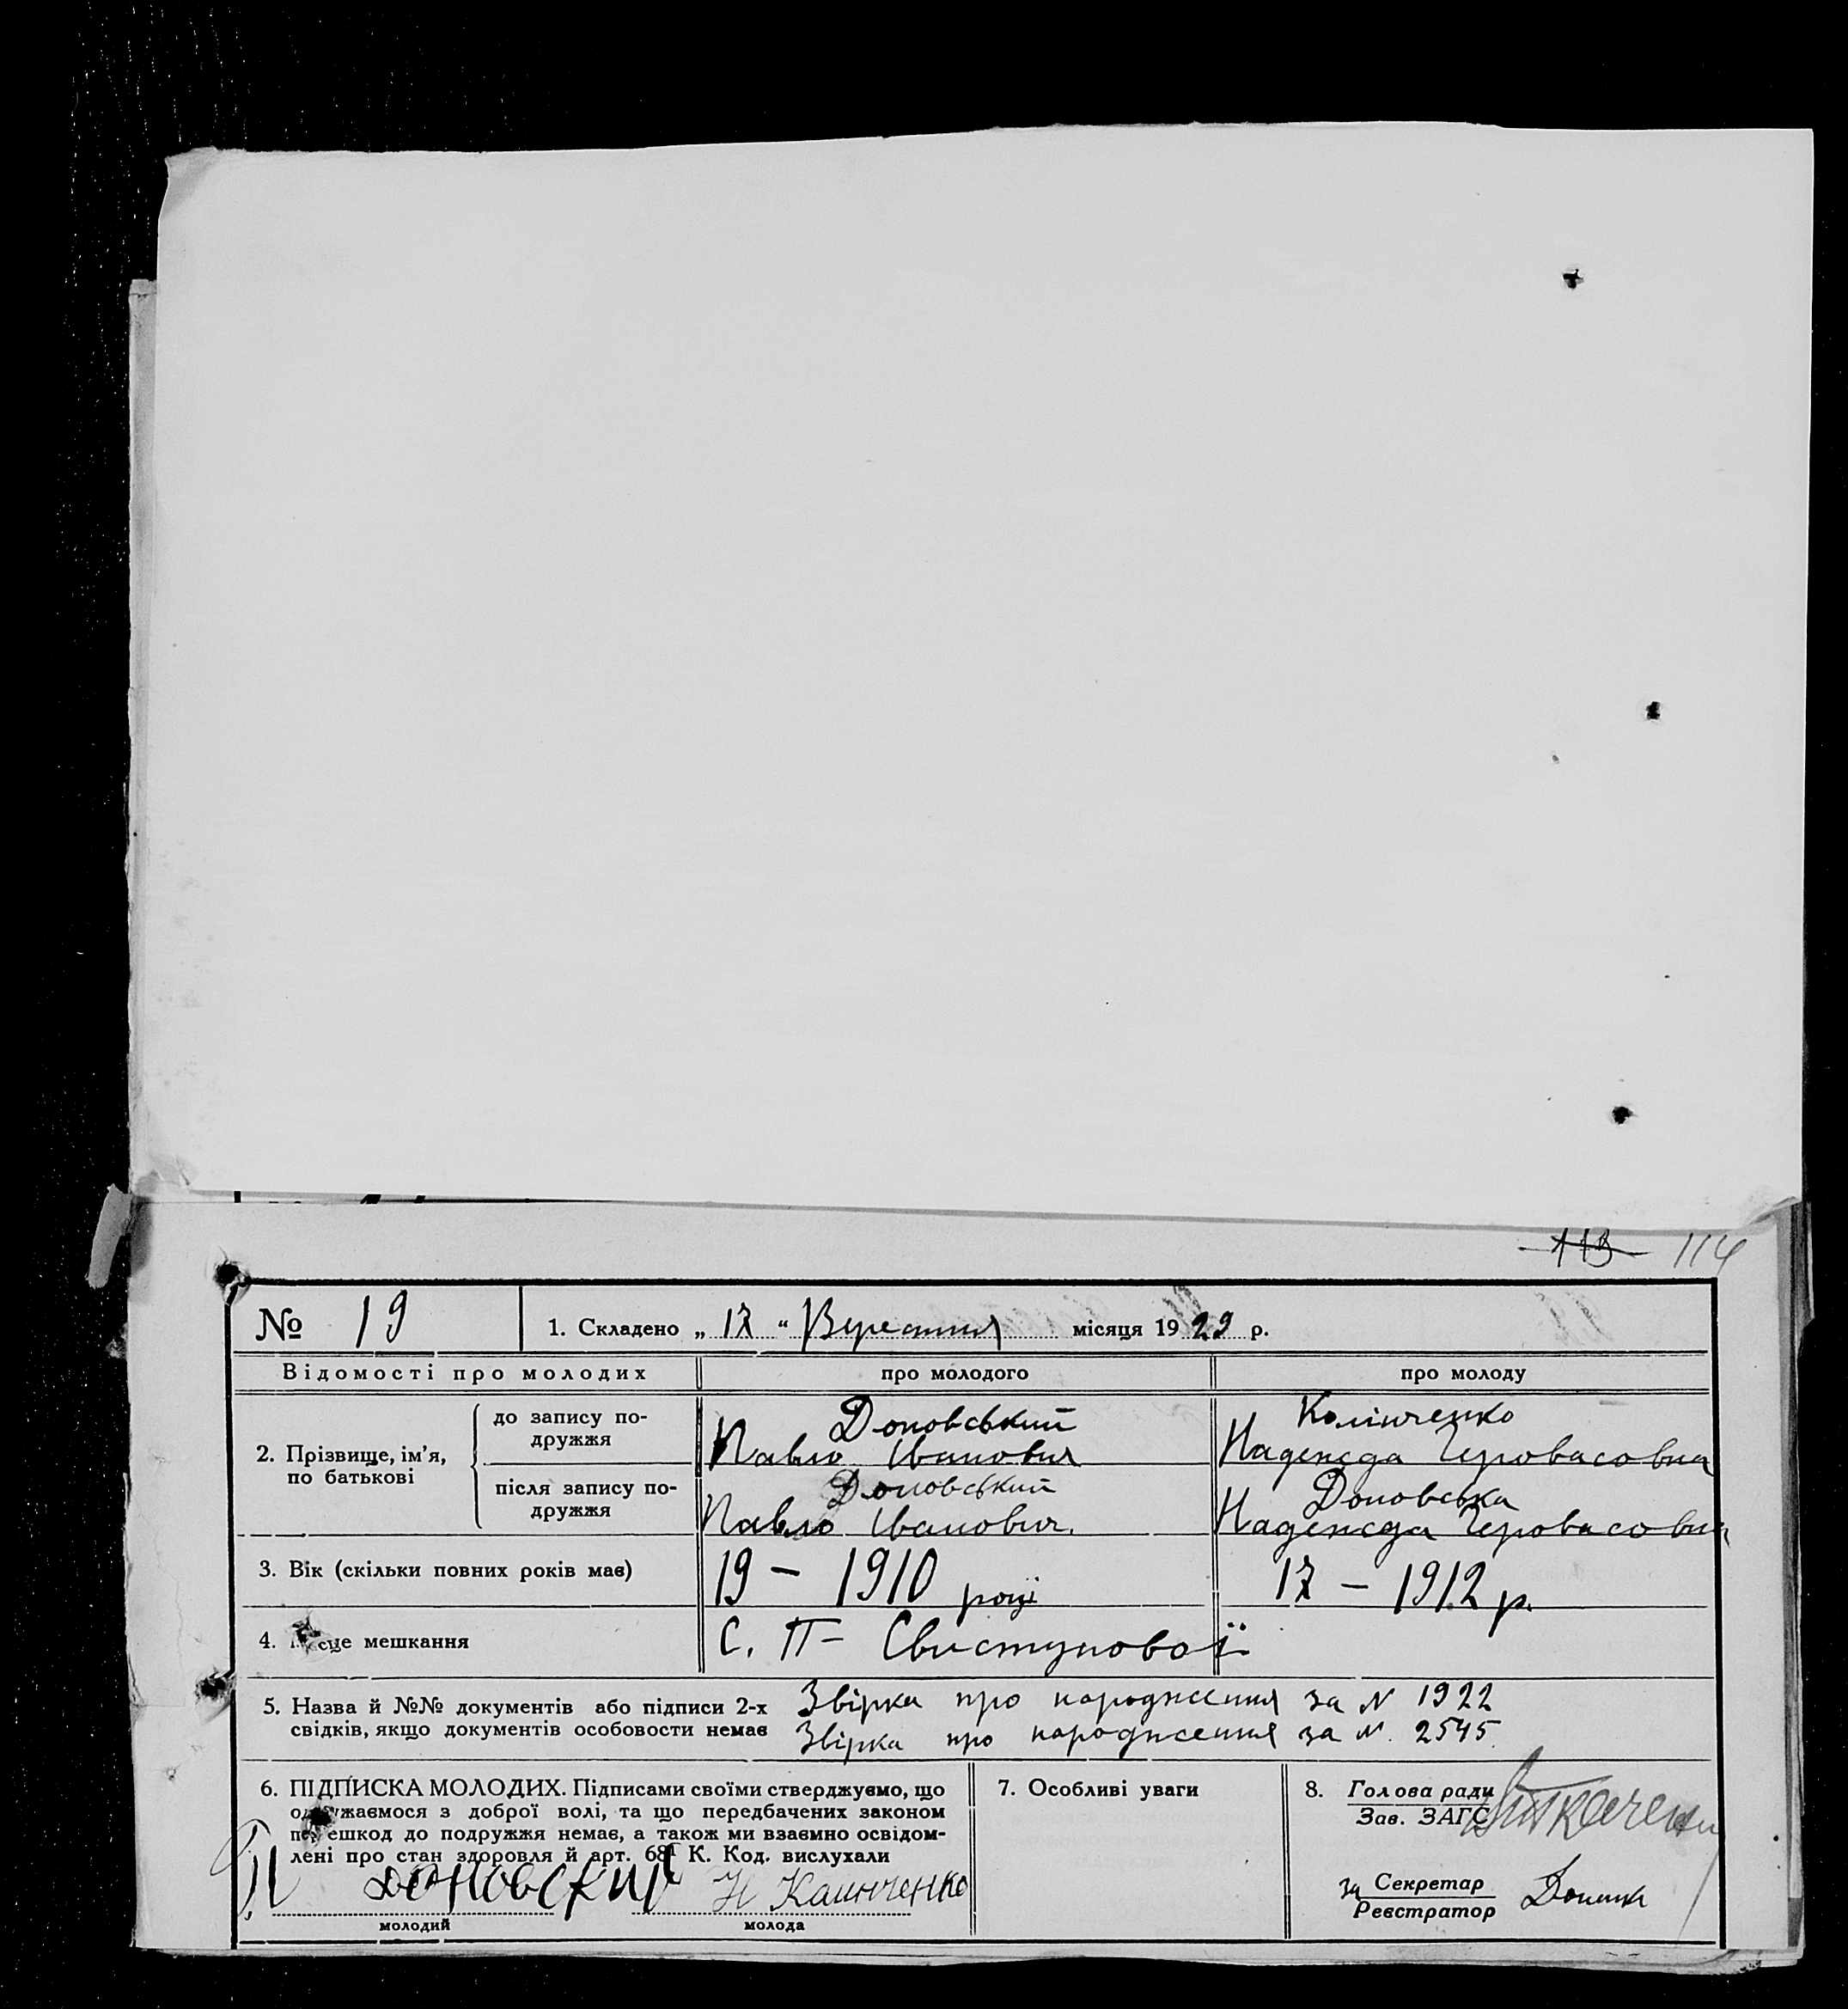 113 114
№ 19 1. Складено „ 17 “ Вересття місяця 1929 р.
Відомості про молодих про молодого про молоду
2. Прізвище, ім’я, по батькові
до запису по-
дружжя
Доновський
Павло Іванович
Колінченко
Надежда Геровасовна
після запису по-
дружжя
Доновський
Павло Іванович.
Доновська
Надежда Геровасовна
3. Вік (скільки повних років має) 19 – 1910 році 17 – 1912 р.
4. сце мешкання С. П – Свистунової
5. Назва й №№ документів або підписи 2-х
свідків, якщо документів особовости немає
Звірка про народження за N 1922
Звірка про народження за N. 2545.
6. ПІДПИСКА МОЛОДИХ. Підписами своїми стверджуємо, що
одружаємося з доброї волі, та що передбачених законом
перешкод до подружжя немає, а також ми взаємно освідом-
лені про стан здоровля й арт. 68¹ К. Код. вислухали
П доновский Н Калинченко
молодий молода
7. Особливі уваги
8. Голова ради
Зав. ЗАГС
за Секретар
Реєстратор